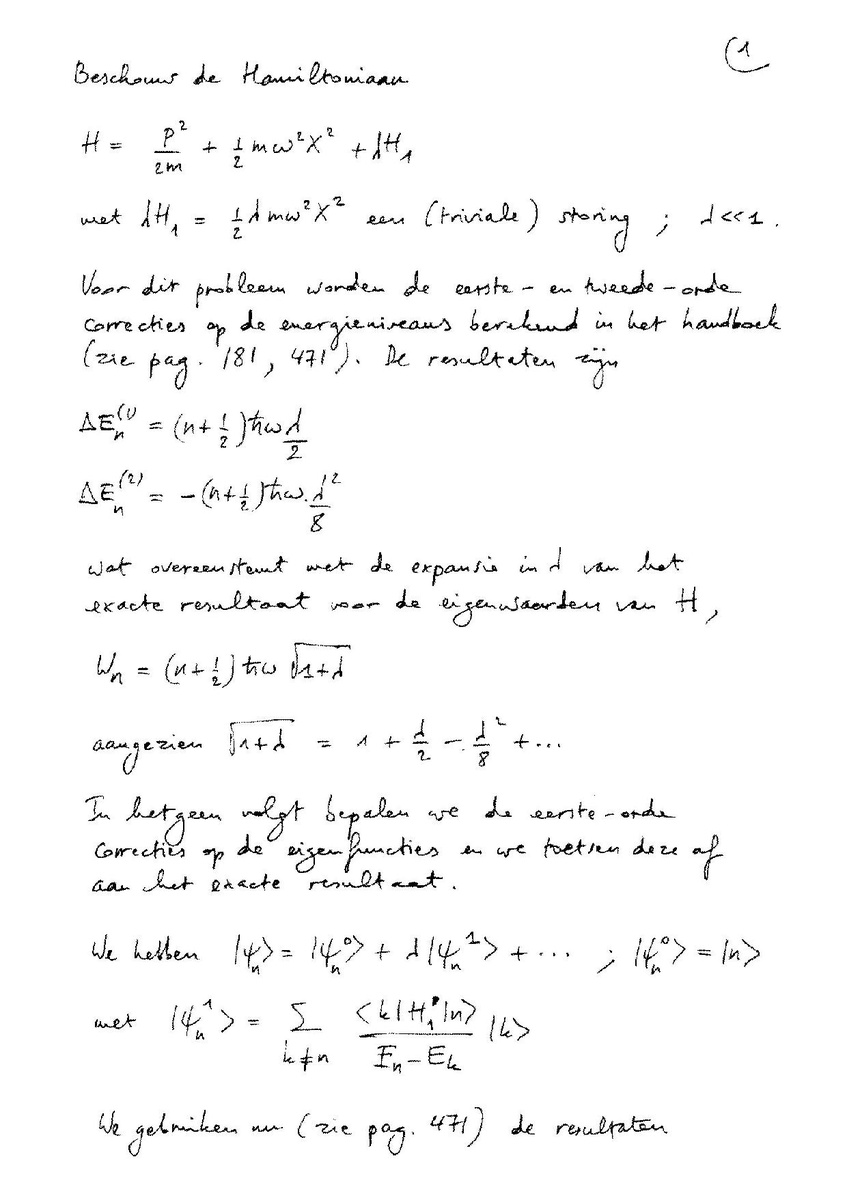 1
Beschouw de Hamiltoniaan
H = P²/2m + 1/2 mω²X² + λH₁
met λH₁ = 1/2 λmω²X² een (triviale) storing ; λ<<1.
Voor dit probleem worden de eerste- en tweede-orde
correcties op de energieniveaus berekend in het handboek
(zie pag. 181, 471). De resultaten zijn
ΔEₙ⁽¹⁾ = (n+1/2)ħω λ/2
ΔEₙ⁽²⁾ = -(n+1/2)ħω.λ²/8
wat overeenstemt met de expansie in λ van het
exacte resultaat voor de eigenwaarden van H,
Wₙ = (n+1/2)ħω √(1+λ)
aangezien √(1+λ) = 1 + λ/2 - λ²/8 + ...
In hetgeen volgt bepalen we de eerste-orde
correcties op de eigenfuncties en we toetsen deze af
aan het exacte resultaat.
We hebben |ψₙ> = |ψₙ⁰> + λ|ψₙ¹> + ... ; |ψₙ⁰> = |n>
met |ψₙ¹> = Σ_{k≠n} <k|H₁|n>/(Eₙ-Eₖ) |k>
We gebruiken nu (zie pag. 471) de resultaten